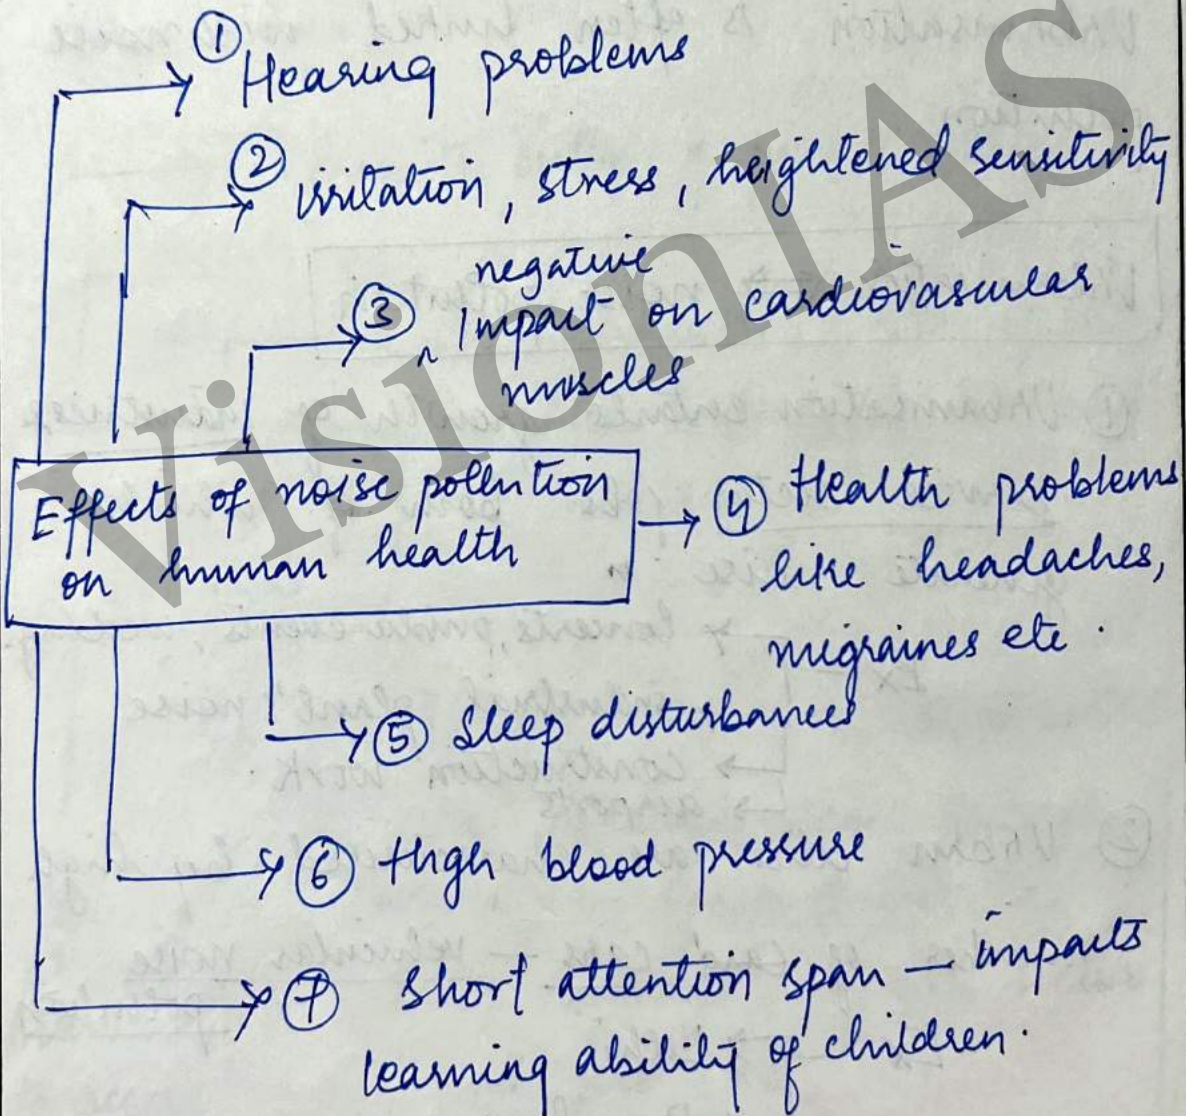 ① Hearing problems
② irritation, stress, heightened sensitivity
negative
③ ^ Impact on cardiovascular
muscles
Effects of noise pollution
on human health
④ Health problems
like headaches,
migraines etc.
⑤ Sleep disturbances
⑥ High blood pressure
⑦ Short attention span – impacts
learning ability of children.
VisionIAS